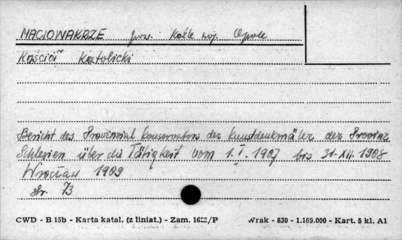 NACIOWAKRZE pow. Koźle woj. Opole
Kościół Katolicki
Bericht des Provinzial Konservators der Kunstdenkmäler der Provinz
Schlesien über die Tätigkeit vom 1.I.1907 bis 31.XII.1908
Wrocław 1909
str. 73
CWD - B 15b - Karta katal. (z liniat.) - Zam. 1628/P Wrak - 630 - 1.169.000 - Kart. 5 kl. A1